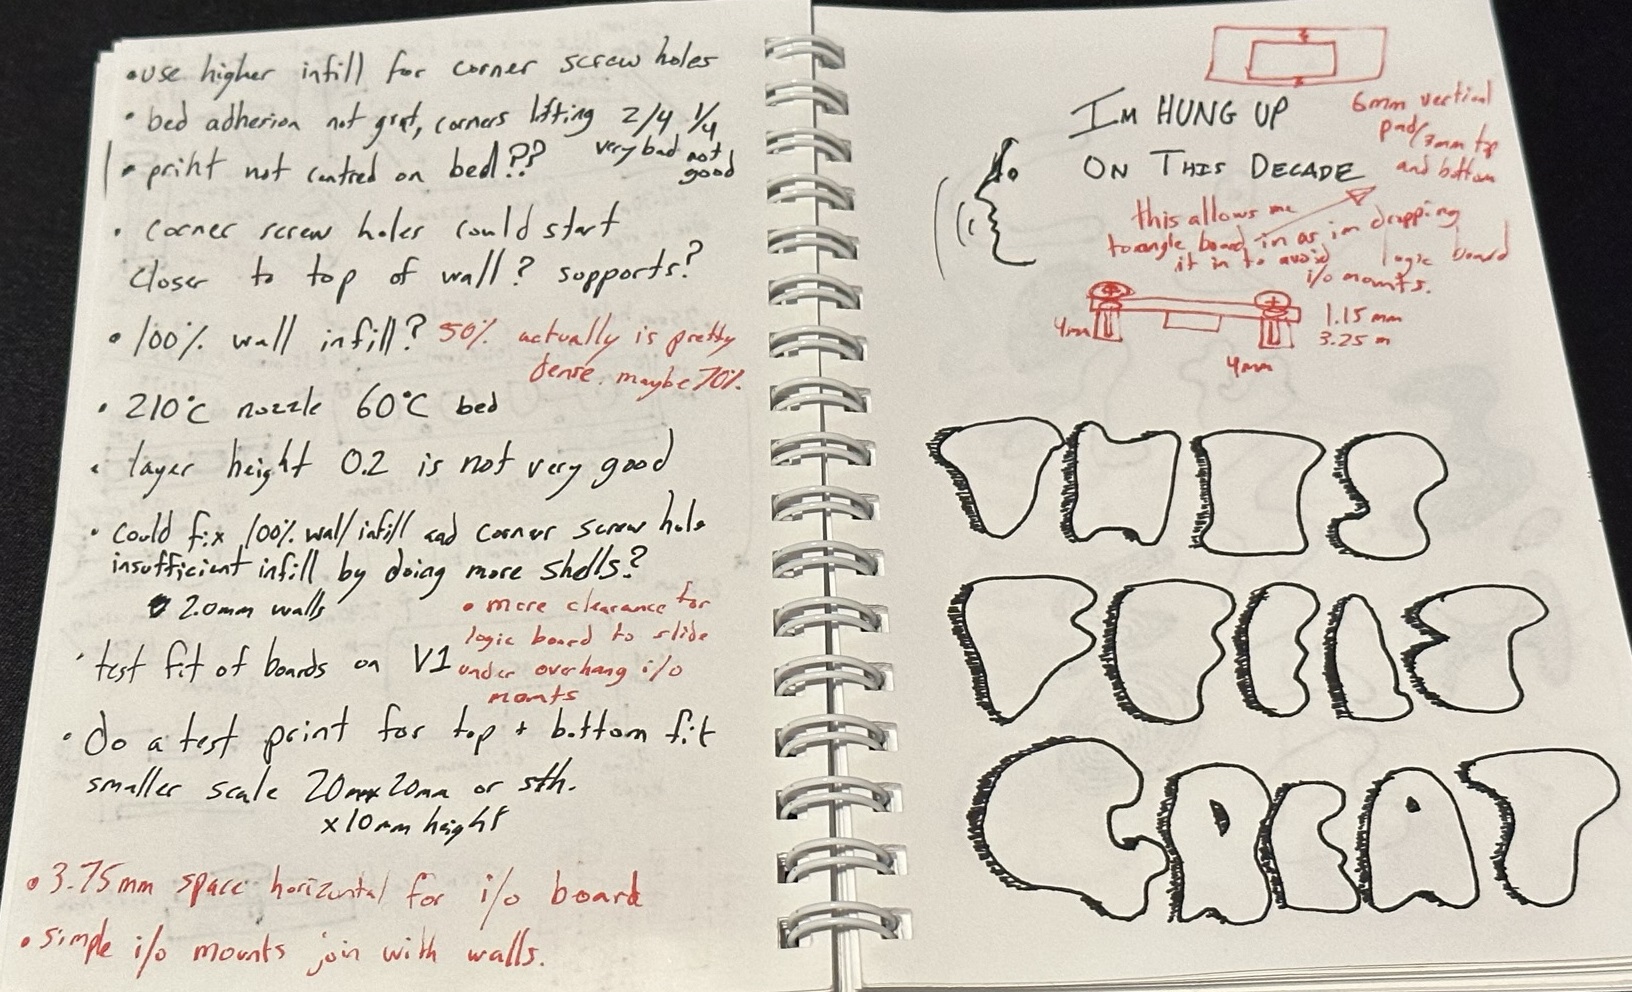 • use higher infill for corner screw holes
• bed adhesion not great, corners lifting 2/4 1/4
very bad not good
• print not centred on bed??
• corner screw holes could start
closer to top of wall? supports?
• 100% wall infill? 50% actually is pretty
dense. maybe 70%.
• 210°C nozzle 60°C bed
• layer height 0.2 is not very good
• could fix 100% wall infill and corner screw hole
insufficient infill by doing more shells?
• 2.0mm walls
• test fit of boards on V1
• more clearance for
logic board to slide
under overhang i/o
mounts
• do a test print for top + bottom fit
smaller scale 20mmx20mm or sth.
x10mm height
• 3.75mm space horizontal for i/o board
• simple i/o mounts join with walls.
IM HUNG UP
ON THIS DECADE
6mm vertical
pad/3mm top
and bottom
this allows me
to angle board in as im dropping
it in to avoid
i/o mounts.
logic board
4mm
1.15mm
3.25m
4mm
GREAT